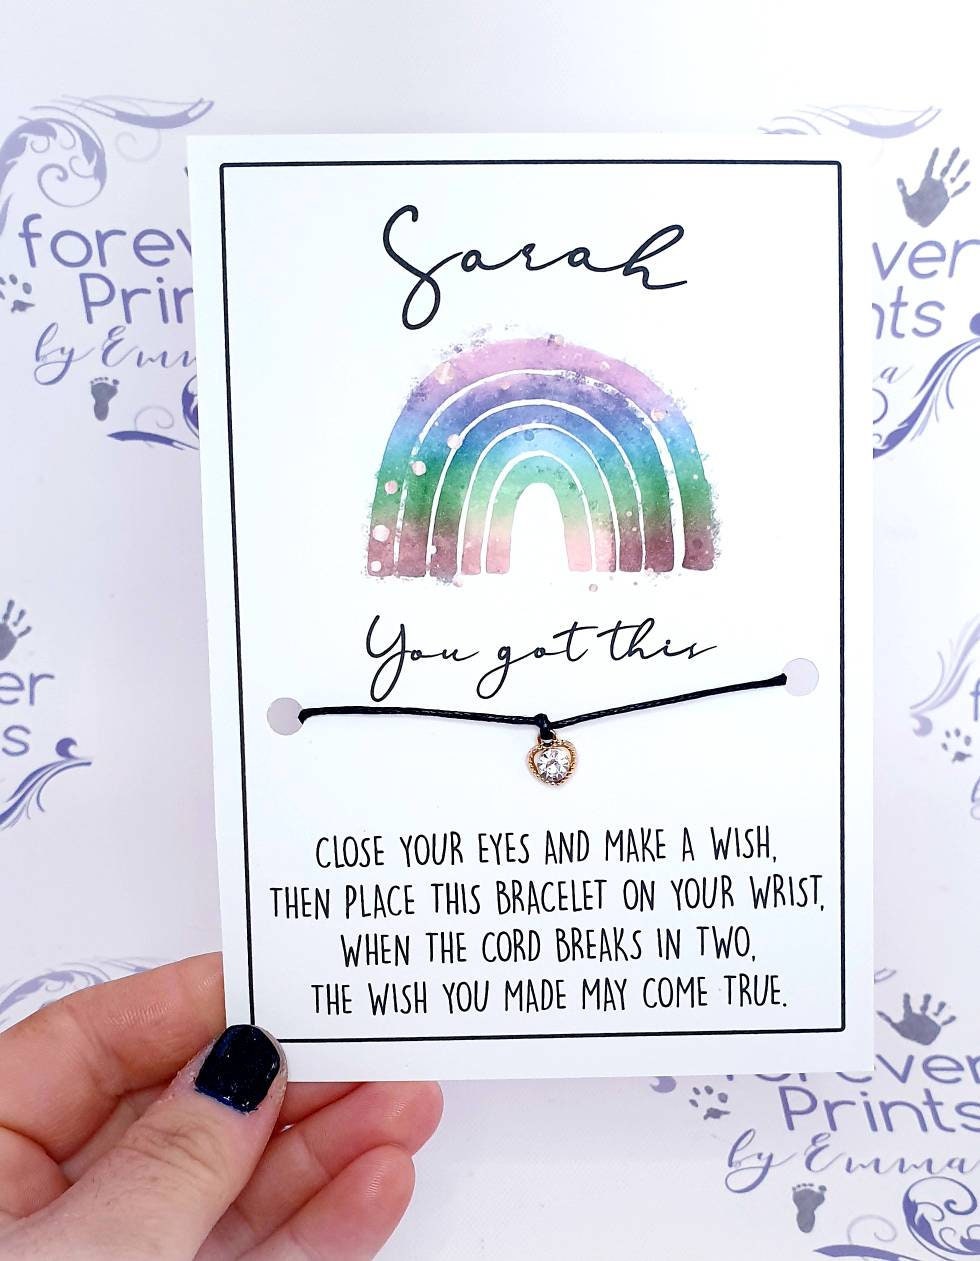 Sarah
You got this
CLOSE YOUR EYES AND MAKE A WISH,
THEN PLACE THIS BRACELET ON YOUR WRIST,
WHEN THE CORD BREAKS IN TWO,
THE WISH YOU MADE MAY COME TRUE.
forev
Prin
by Emma
ver
nts
a
er
s
forever
Prints
by Emma